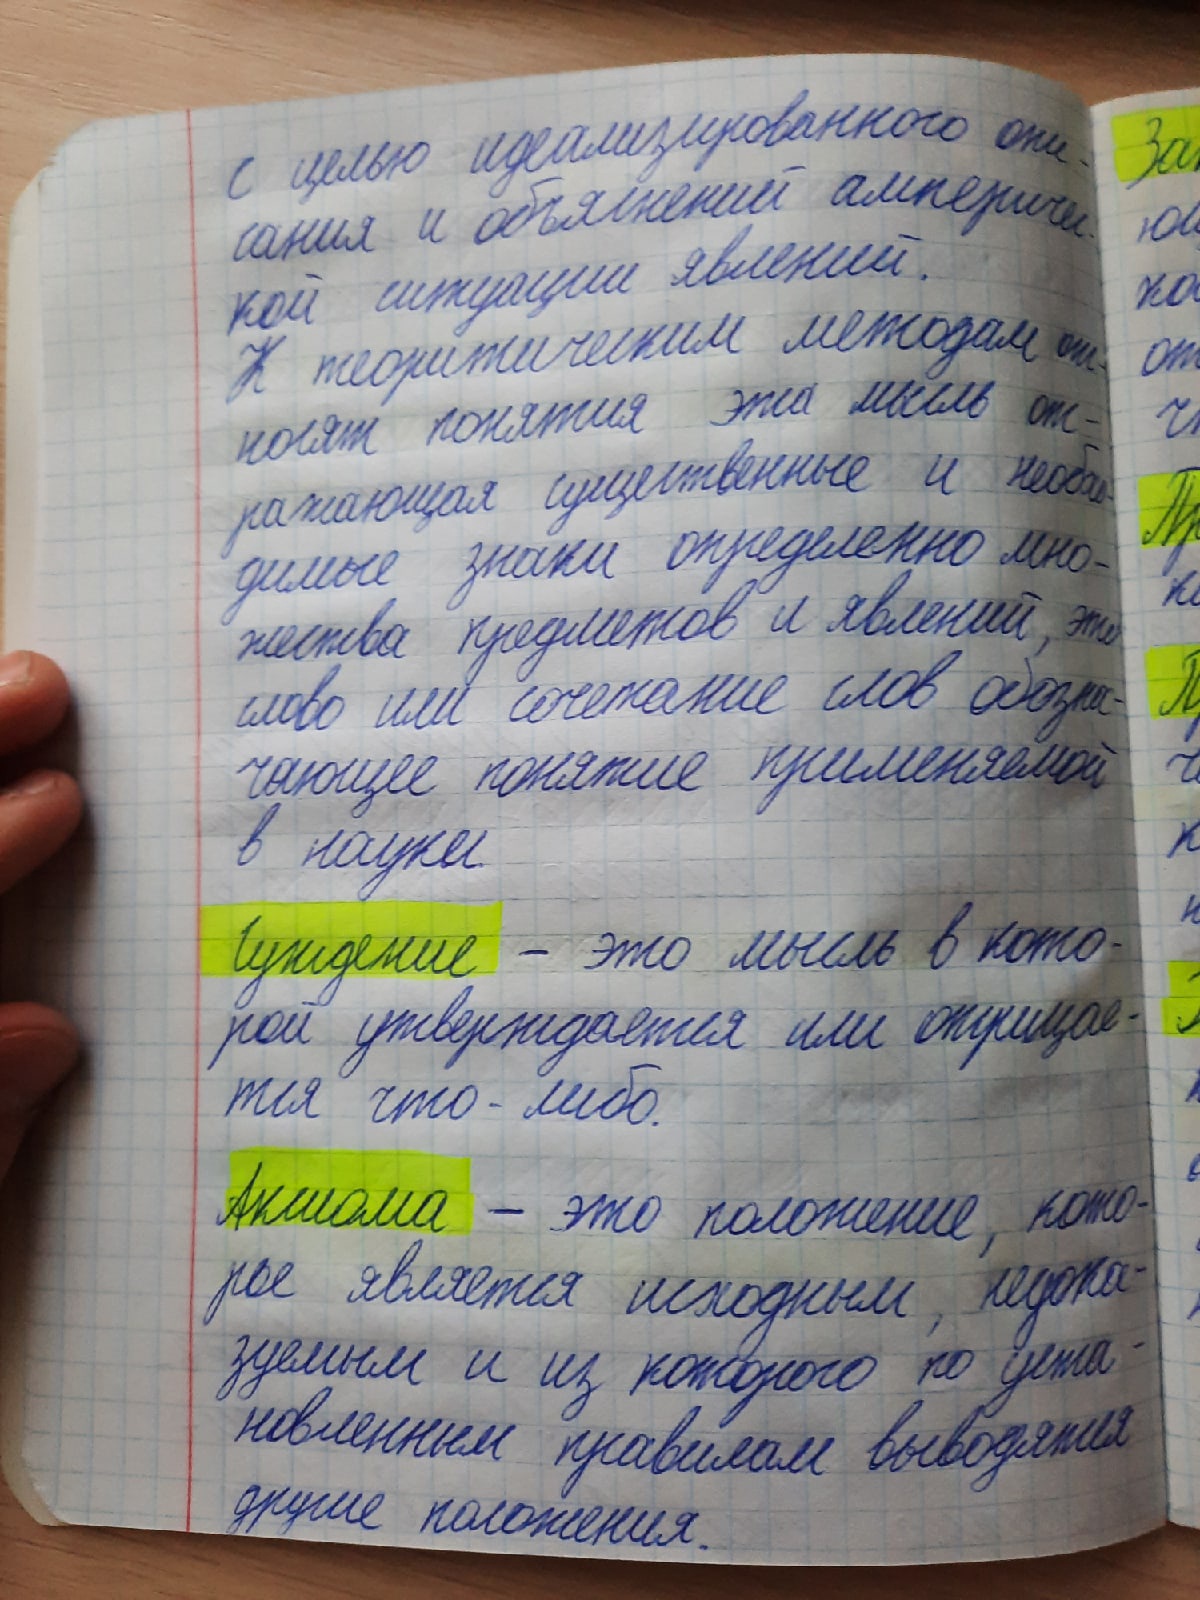 с целью идеализированного опи-
сания и объяснений амперичес-
кой ситуации явлений.
К теоритическим методам от-
носят понятия эта мысль от-
ражающая существенные и необхо-
димые знаки определенно мно-
жества предметов и явлений, это
слово или сочетание слов обозна-
чающее понятие применяемой
в науки.
Суждение - это мысль в кото-
рой утверждается или отрицае-
тся что-либо.
Аксиома - это положение, кото-
рое является исходным, недока-
зуемым и из которого по уста-
новленным правилам выводятся
другие положения.